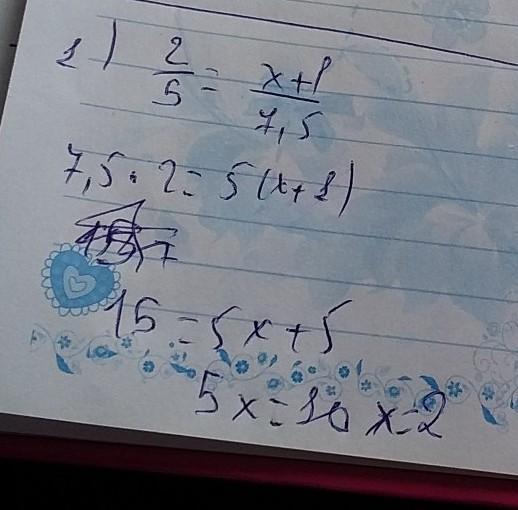 1) 2/5 = x+1/7,5
7,5 · 2 = 5(x+1)
15 = 5x + 5
5x = 10 x = 2